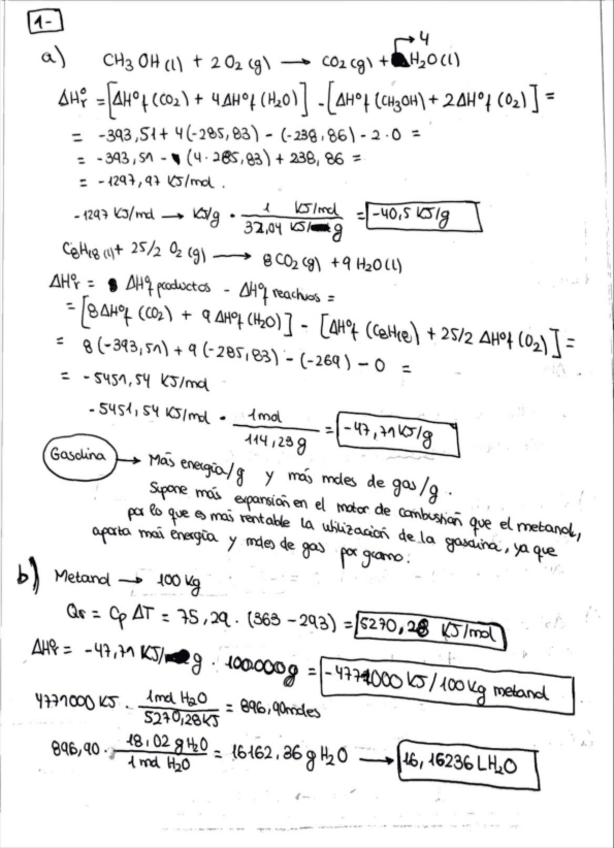 1-
a) CH3OH(l) + 2O2(g) → CO2(g) + 4 H2O(l)
ΔHºr = [ΔHºf(CO2) + 4ΔHºf(H2O)] - [ΔHºf(CH3OH) + 2ΔHºf(O2)] =
= -393,51 + 4(-285,83) - (-238,86) - 2·0 =
= -393,51 - (4·285,83) + 238,86 =
= -1297,97 KJ/mol.
-1297 KJ/mol → KJ/g · 1 KJ/mol / 32,04 KJ/g = -40,5 KJ/g
C8H18(l) + 25/2 O2(g) → 8CO2(g) + 9H2O(l)
ΔHºr = ΔHºf productos - ΔHºf reactivos =
= [8ΔHºf(CO2) + 9ΔHºf(H2O)] - [ΔHºf(C8H18) + 25/2 ΔHºf(O2)] =
= 8(-393,51) + 9(-285,83) - (-269) - 0 =
= -5451,54 KJ/mol
-5451,54 KJ/mol · 1mol / 114,23g = -47,71 KJ/g
Gasolina → Más energía/g y más moles de gas/g.
Supone más expansión en el motor de combustión que el metanol,
por lo que es más rentable la utilización de la gasolina, ya que
aporta más energía y moles de gas por gramo.
b) Metanol → 100 Kg
Qr = Cp ΔT = 75,29·(363-293) = 5270,28 KJ/mol
ΔHºr = -47,71 KJ/g · 100.000g = -4771000 KJ/100 Kg metanol
4771000 KJ · 1mol H2O / 5270,28KJ = 896,90moles
896,90 · 18,02 g H2O / 1 mol H2O = 16162,36 g H2O → 16,16236 L H2O